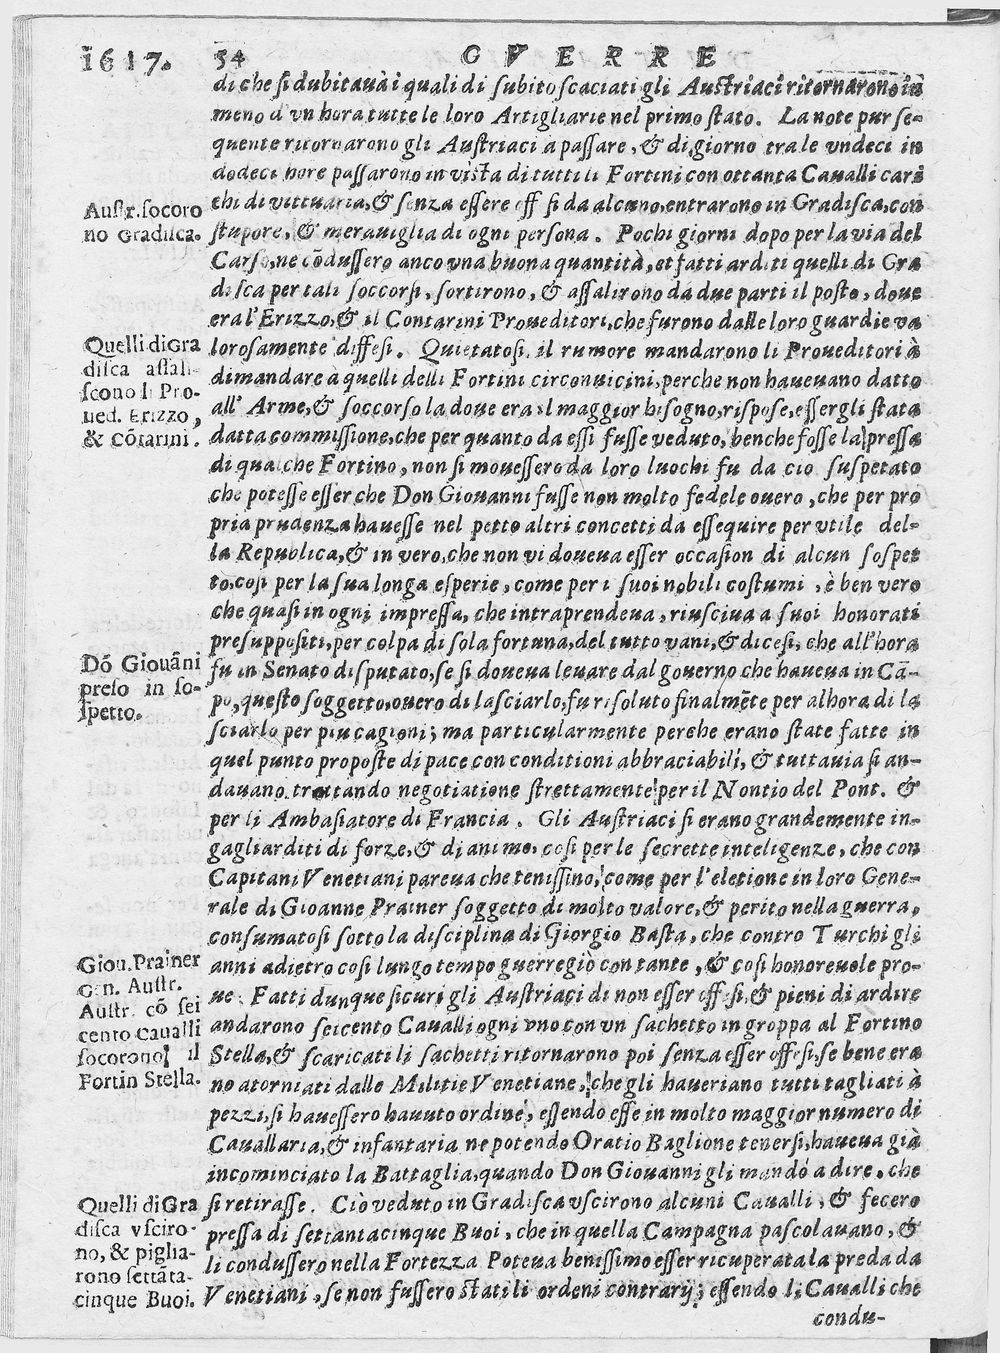 1617. 54 GVERRE
di che si dubitauà i quali di subito scaciati gli Austriaci ritornarono in
meno d vn hora tutte le loro Artigliarie nel primo stato. La note pur se-
quente ritornarono gli Austriaci a passare, & di giorno tra le vndeci in
dodeci hore passarono in vista di tutti li Fortini con ottanta Caualli cari
Austr. socoro
no Gradisca.
chi di vittuaria, & senza essere off si da alcuno, entrarono in Gradisca, con
stupore, & merauiglia di ogni persona. Pochi giorni dopo per la via del
Carso, ne cõdussero anco vna buona quantità, et fatti arditi quelli di Gra
disca per tali soccorsi, sortirono, & assalirono da due parti il posto, doue
era l'Erizzo, & il Contarini Proueditori, che furono dalle loro guardie va
Quelli di Gra
disca assali-
scono li Pro-
ued. Erizzo,
& Cõtarini.
lorosamente diffesi. Quietatosi il rumore mandarono li Proueditori à
dimandare à quelli delli Fortini circonuicini, perche non haueuano datto
all' Arme, & soccorso la doue era il maggior bisogno, rispose, essergli stata
datta commissione, che per quanto da essi fusse veduto, benche fosse la pressa
di qualche Fortino, non si mouessero da loro luochi fu da cio suspetato
che potesse esser che Don Giouanni fusse non molto fedele ouero, che per pro
pria prudenza hauesse nel petto altri concetti da essequire per vtile del-
la Republica, & in vero, che non vi doueua esser occasion di alcun sospet
to, cosi per la sua longa esperie, come per i suoi nobili costumi, è ben vero
che quasi in ogni impressa, che intraprendeua, riusciua a suoi honorati
presuppositi, per colpa di sola fortuna, del tutto vani, & dicesi, che all'hora
Dõ Giouãni
preso in so-
spetto.
fu in Senato disputato, se si doueua leuare dal gouerno che haueua in Cã-
po, questo soggetto, ouero di lasciarlo, fu risoluto finalmẽte per alhora di la
sciarlo per piu cagioni; ma particularmente perche erano state fatte in
quel punto proposte di pace con conditioni abbraciabili, & tuttauia si an-
dauano trattando negotiatione strettamente per il Nontio del Pont. &
per li Ambasiatore di Francia. Gli Austriaci si erano grandemente in-
gagliarditi di forze, & di animo, cosi per le secrette inteligenze, che con
Capitani Venetiani pareua che tenissino, come per l'eletione in loro Gene-
rale di Gioanne Prainer soggetto di molto valore, & perito nella guerra,
consumatosi sotto la disciplina di Giorgio Basta, che contro Turchi gli
Giou. Prainer
Gen. Austr.
Austr. cõ sei
cento Caualli
socorono il
Fortin Stella.
anni adietro cosi lungo tempo guerregiò con tante, & cosi honoreuole pro-
ue: Fatti dunque sicuri gli Austriaci di non esser offesi, & pieni di ardire
andarono seicento Caualli ogni vno con vn sachetto in groppa al Fortino
Stella, & scaricati li sachetti ritornarono poi senza esser offesi, se bene era
no atorniati dalle Militie Venetiane, che gli haueriano tutti tagliati à
pezzi, si hauessero hauuto ordine, essendo esse in molto maggior numero di
Cauallaria, & infantaria ne potendo Oratio Baglione tenersi, haueua già
incominciato la Battaglia, quando Don Giouanni gli mandò a dire, che
Quelli di Gra
disca vsciro-
no, & piglia-
rono settãta-
cinque Buoi.
si retirasse. Ciò veduto in Gradisca vscirono alcuni Caualli, & fecero
pressa di settantacinque Buoi, che in quella Campagna pascolauano, &
li condussero nella Fortezza Poteua benissimo esser ricuperata la preda da
Venetiani, se non fussero stati li ordeni contrarij; essendo li Caualli che
condu-